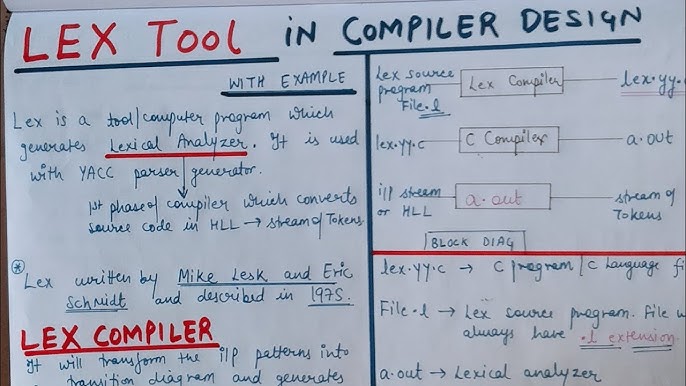 LEX TOOL IN COMPILER DESIGN
WITH EXAMPLE
Lex is a tool/computer program which
generates Lexical Analyzer. It is used
with YACC parser generator.
1st phase of compiler which converts
source code in HLL → stream of Tokens
* Lex written by Mike Lesk and Eric
Schmidt and described in 1975.
LEX COMPILER
It will transform the i/p patterns into
transition diagram and generates
Lex source
program
File.l
Lex Compiler
lex.yy.
lex.yy.c
C Compiler
a.out
i/l stream
or HLL
a.out
stream of
Tokens
BLOCK DIAG
lex.yy.c → C program / C Language
File.l → Lex source program. File
always have .l extension.
a.out → Lexical analyzer